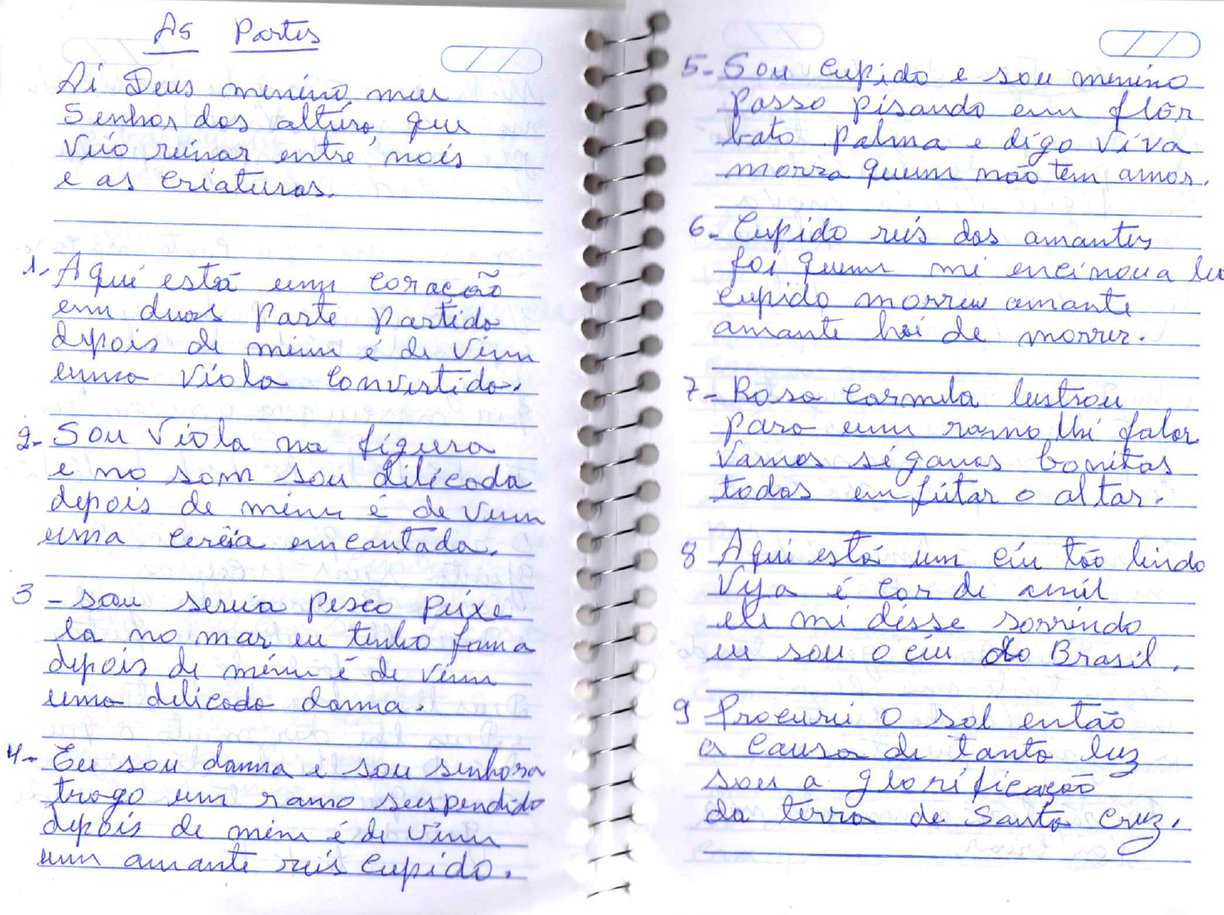 As Partes
Ai Deus menino meu
Senhor das altúra, que
Veio reinar entre nois
e as criaturas.
1- Aqui está um coração
em duas parte partido
depois de mim é de vim
uma viola convertida.
2- Sou viola na figura
e no som sou dilicada
depois de mim é de vim
uma cereia encantada.
3 - sou sereia pesco peixe
la no mar eu tenho fama
depois de mim é de vim
uma dilicada dama.
4- Eu sou dama e sou senhora
trago um ramo suspendido
depois de mim é de vim
um amante reis cupido.
5- Sou cupido e sou menino
Passo pisando em flôr
bato palma e digo viva
morra quem não tem amor.
6- Cupido reis dos amantes
foi quem mi encinou a
cupido morreu amante
amante hei de morrer.
7- Rosa carmela lustrou
para um ramo lhi falar
Vamos siganas bonitas
todas enfeitar o altar.
8 Aqui está um céu tão lindo
Veja é cor de anil
ele mi disse sorrindo
eu sou o céu do Brasil.
9 Procurei o sol então
a causa de tanta luz
sou a glorificação
da terra de Santa Cruz.